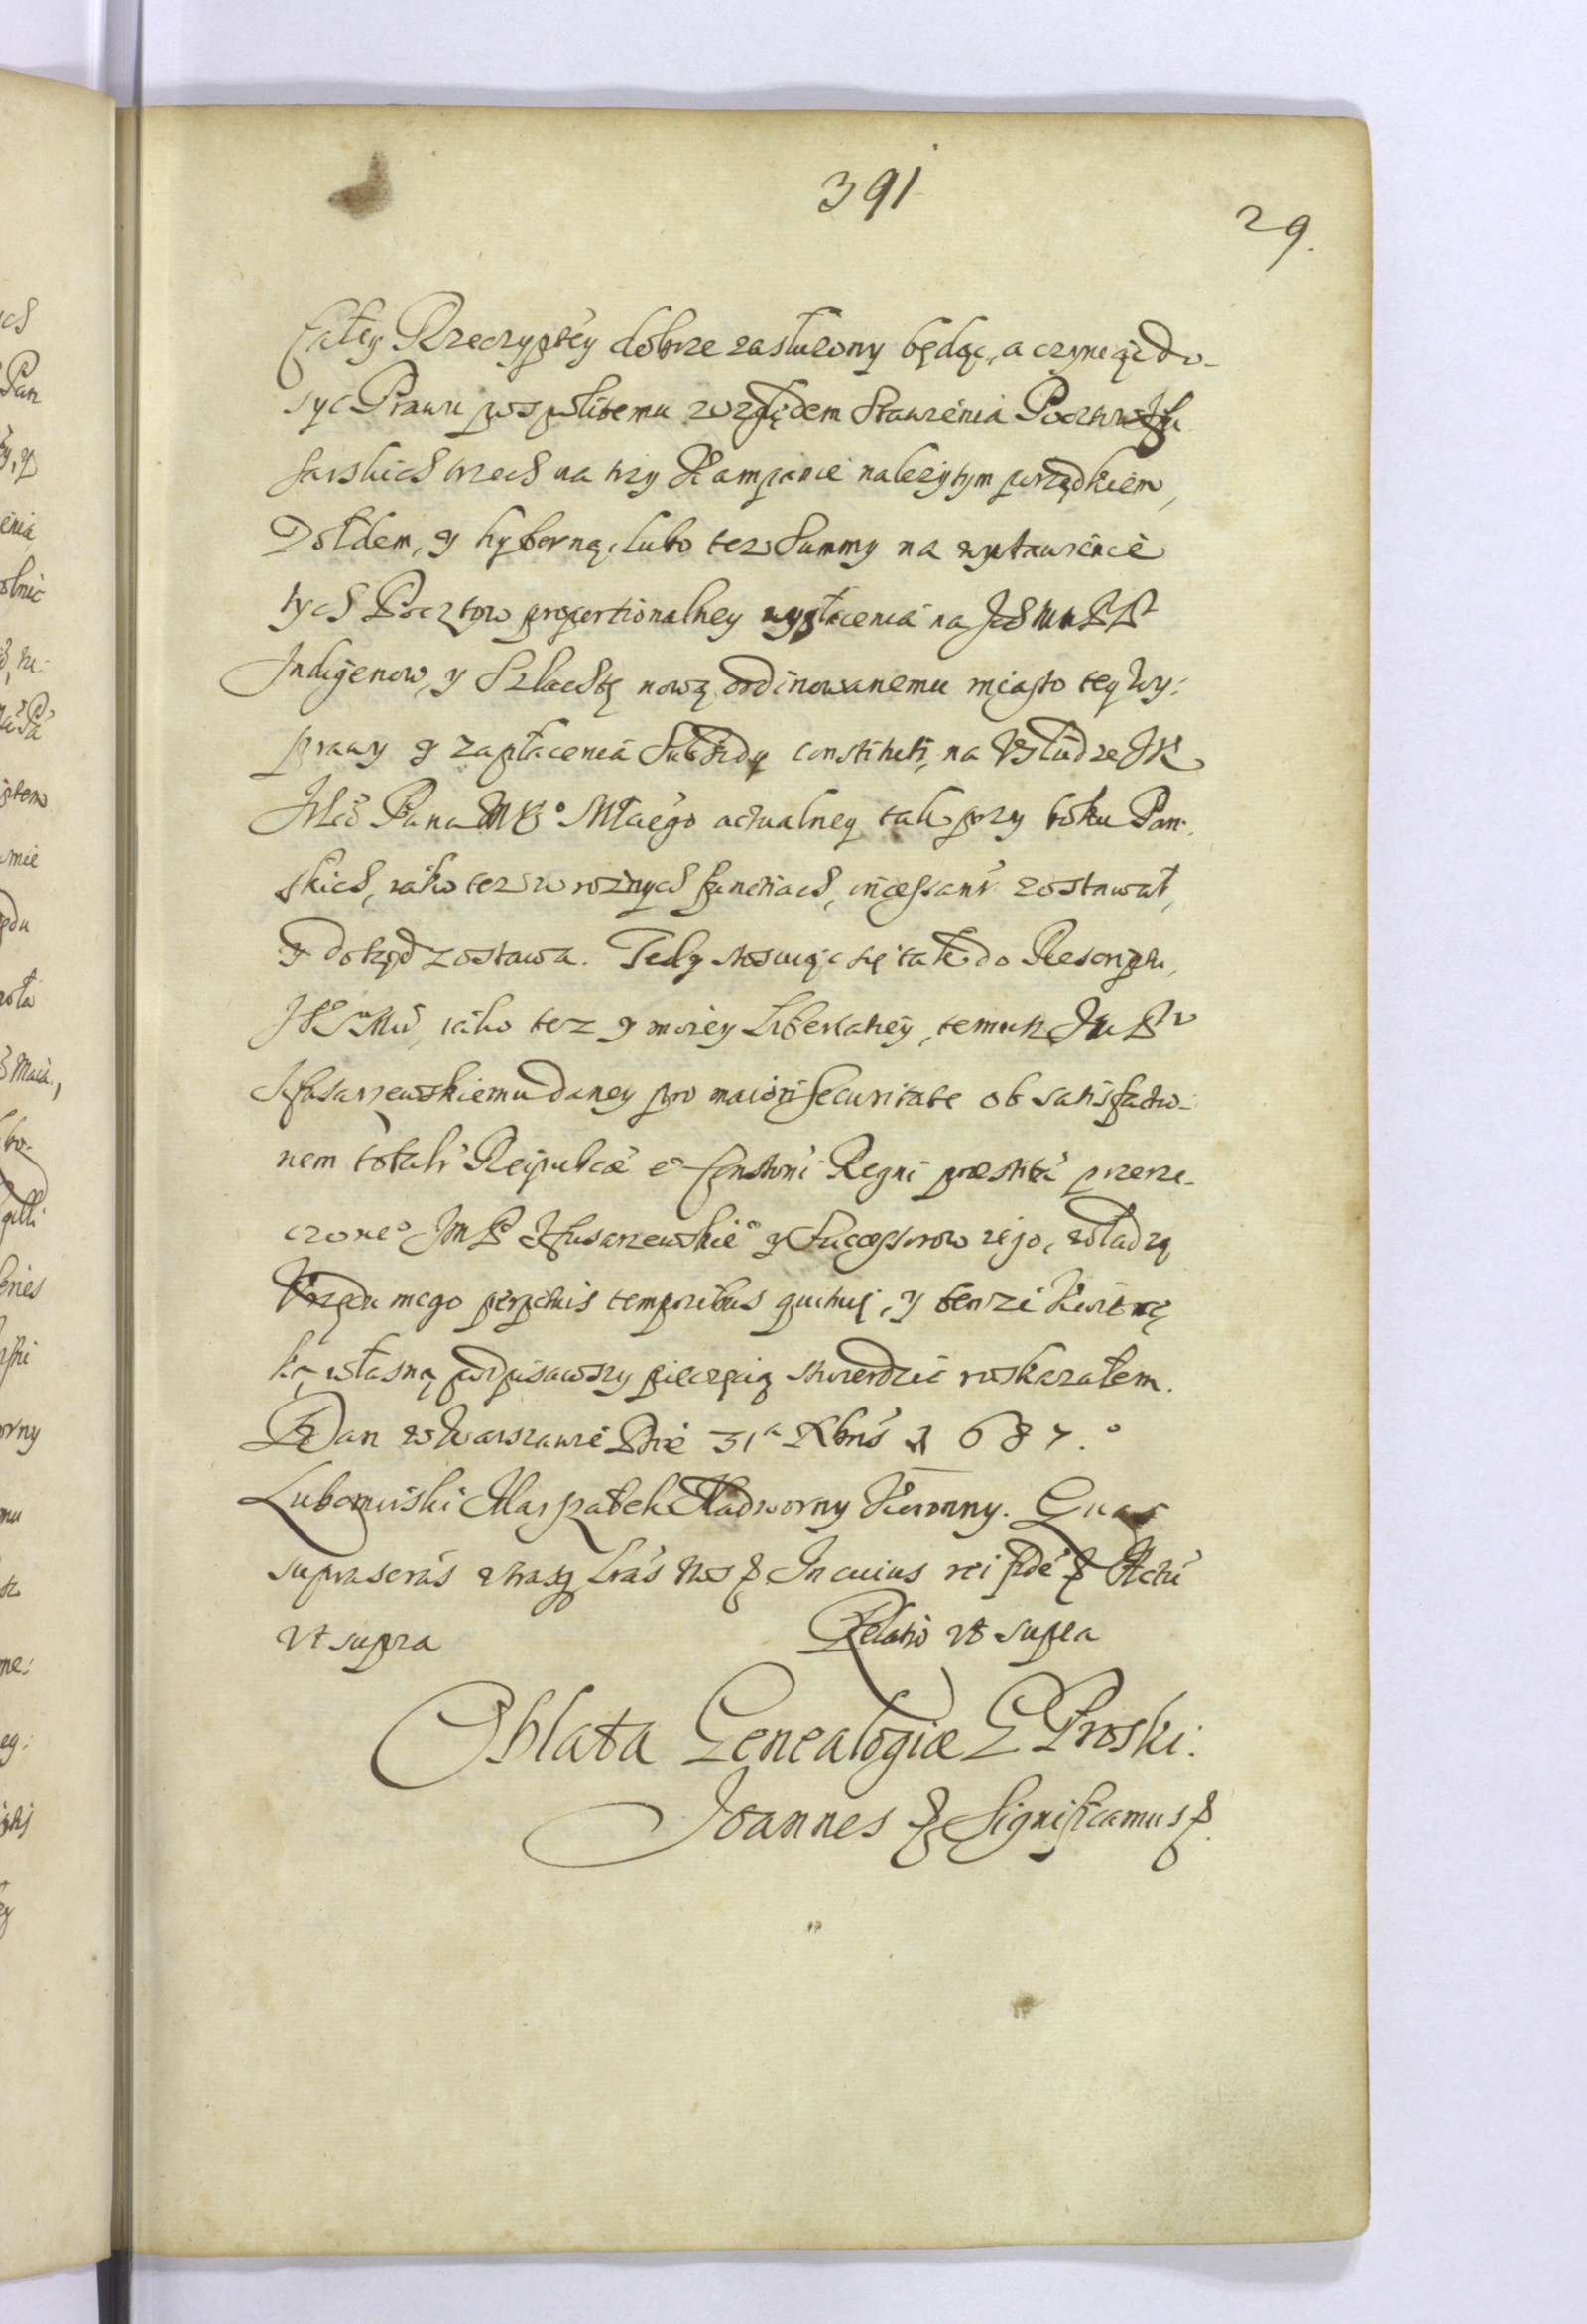 391
29.
Całey Rzeczyptey dobrze zasłuzony będąc, a czyniąc do-
syc Prawu pospolitemu względem Stawienia Pocztow Hu
sarskich trzech na trzy Kampanie nalezytym porządkiem,
Zołdem, y hyberną, lubo tez Summy na wystawienie
tych Pocztow proportionalney wypłacenia na Ich Mu PP
Indigenow, y Szlachtę nową ordinowanemu miasto tey Wy:
prawy y zapłacenia Subsidy constituti, na Usłudze JK
Mci Pana Mo Młaego actualney tak przy boku Pań-
skich, iako tez w roznych functiach, incessant zostawał,
y dotąd zostawa. Tedy stosuiąc się tak do Rescriptu,
iako tez y moiey Libertatiey, temuz
Husarzewskiemu daney pro maiori securitate ob satisfactio-
nem totali Reipubcæ et Constoni Regni præstita przerze-
czoneo Jm P Husarzewskieo y Successorow iego, władzą
Urzędu mego perpetuis temporibus quituię, y tenze Kwit rę
ką własną podpisawszy pieczęcią stwierdzic roskazałem.
Dan w Warszawie Die 31a Xbris 1687.o
Lubomirski Marszałek Nadworny Koronny. Quas
suprascras Lras Nos In cuius rei fide Actu
Vt supra Relatio vt supra
Oblata Genealogiæ G Proski.
Joannes Significamus